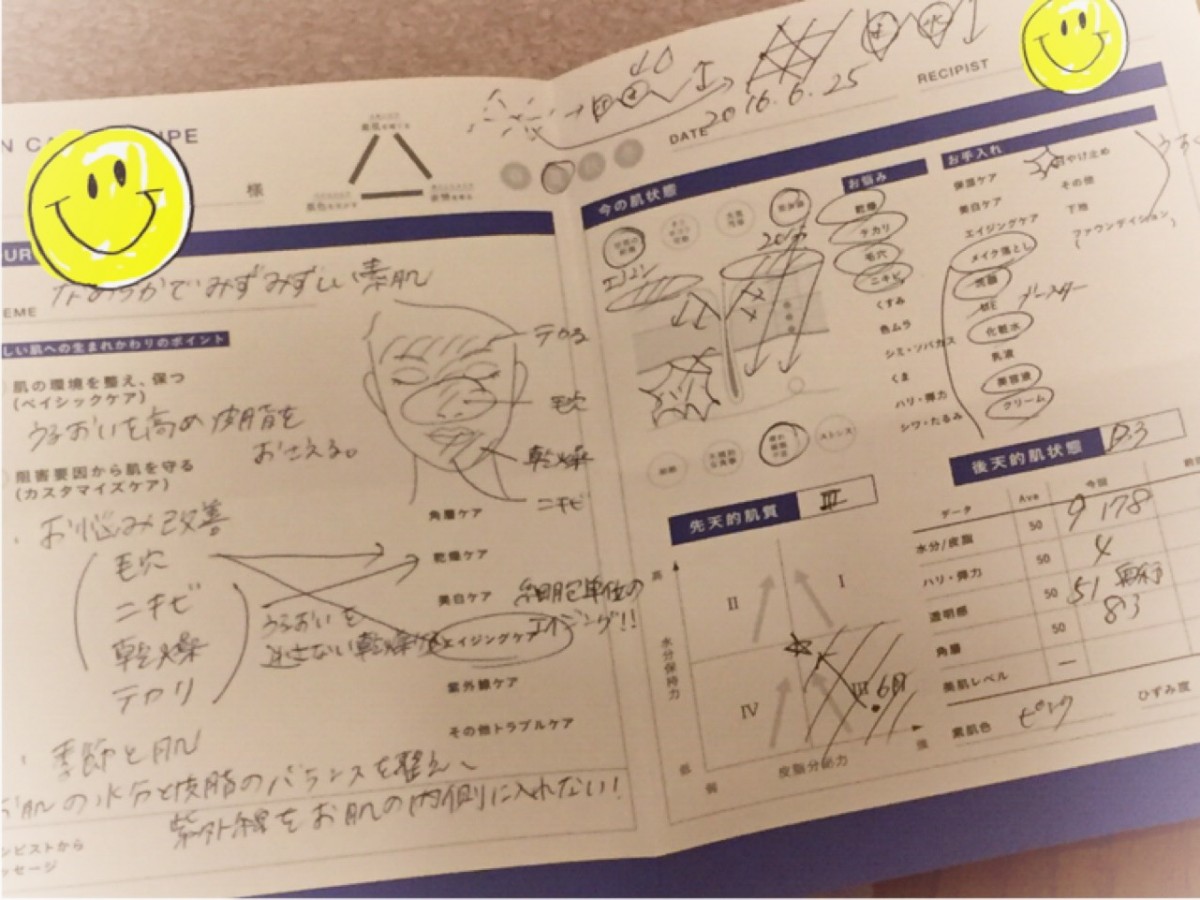 様
なめらかでみずみずしい素肌
EME
しい肌への生まれかわりのポイント
肌の環境を整え、保つ
(ベイシックケア)
うるおいを高め皮脂を
おさえる。
阻害要因から肌を守る
(カスタマイズケア)
・お悩み改善
毛穴
ニキビ
乾燥
テカリ
うるおいを
・季節と肌
お肌の水分と皮脂のバランスを整え、
紫外線をお肌の内側に入れない!
ピストから
ッセージ
テカる
毛穴
乾燥
ニキビ
角層ケア
乾燥ケア
美白ケア
細胞単位の
エイジング!!
エイジングケア
紫外線ケア
その他トラブルケア
DATE 2016.6.25
RECIPIST
今の肌状態
お悩み
乾燥
テカリ
毛穴
ニキビ
くすみ
色ムラ
シミ・ソバカス
くま
ハリ・弾力
シワ・たるみ
お手入れ
保湿ケア
美白ケア
エイジングケア
メイク落とし
洗顔
ブースター
化粧水
乳液
美容液
クリーム
日やけ止め
その他
下地
ファウンデイション
ストレス
先天的肌質 III
高
水分保持力
低
II
I
IV
III 6月
弱
皮脂分泌力
強
後天的肌状態 D-3
データ Ave 今回
水分/皮脂 50 9 178
ハリ・弾力 50 4
透明感 50 51
角層 50 83
美肌レベル —
素肌色 ピンク
ひずみ度